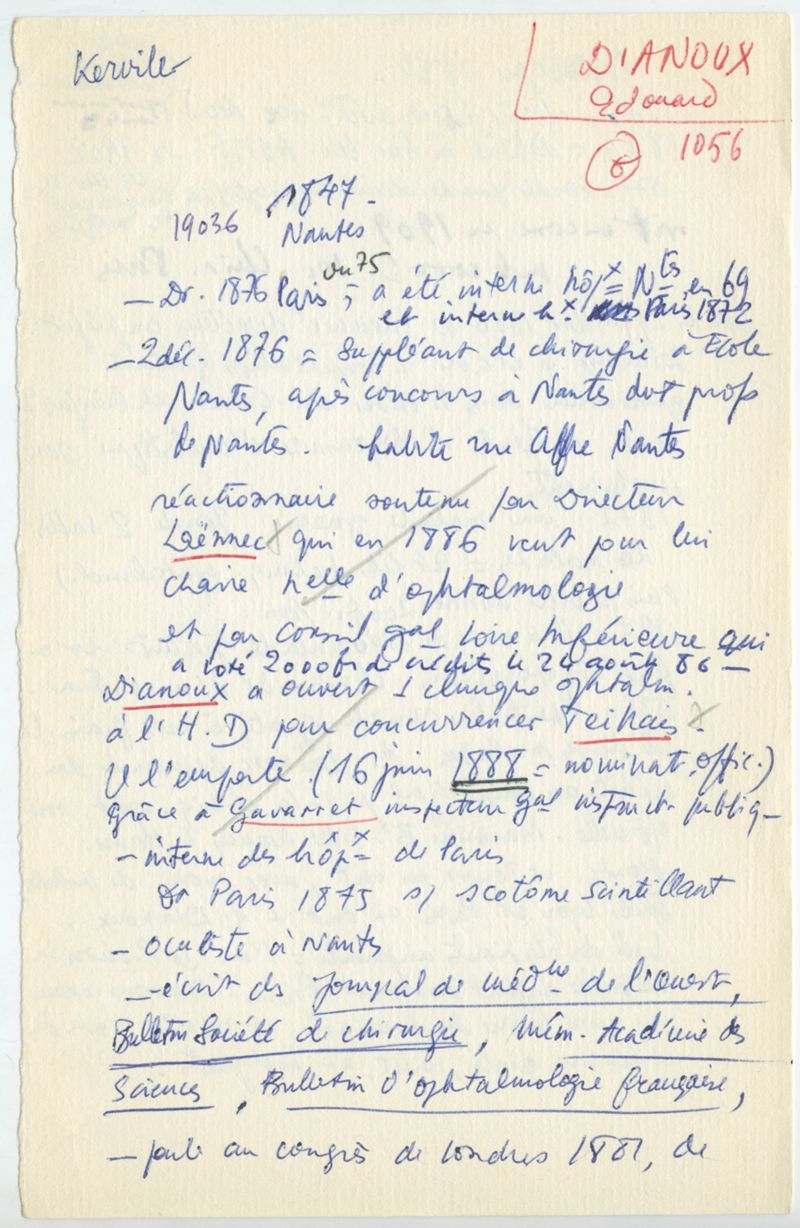 Kerviler
DIANOUX
Edouard
6 1056
1847 -
19036 Nantes
ou 75
- Dr. 1876 Paris ; a été interne hôpx Ntes en 69
et interne hx Paris 1872
- 2 déc. 1876 = suppléant de chirurgie à Ecole
Nantes, après concours à Nantes dvt profs
de Nantes. habite rue Affre Nantes
réactionnaire soutenu par Directeur
Laënnec qui en 1886 veut pour lui
chaire nelle d'ophtalmologie
et par Conseil gal Loire Inférieure qui
a voté 2000f de crédits le 24 août 86 -
Dianoux a ouvert 1 clinique ophtalm.
à l'H. D pour concurrencer Teillais.
Il l'emporte (16 juin 1888 = nominat. offic.)
grâce à Gavarret inspecteur gal instruct. publiq -
- interne des hôpx de Paris
Dr Paris 1875 s/ scotôme scintillant
- oculiste à Nantes
- écrit ds Journal de médne de l'ouest,
Bulletin Société de chirurgie, Mém. Académie des
Sciences, Bulletin d'ophtalmologie française,
- parle au congrès de Londres 1881, de